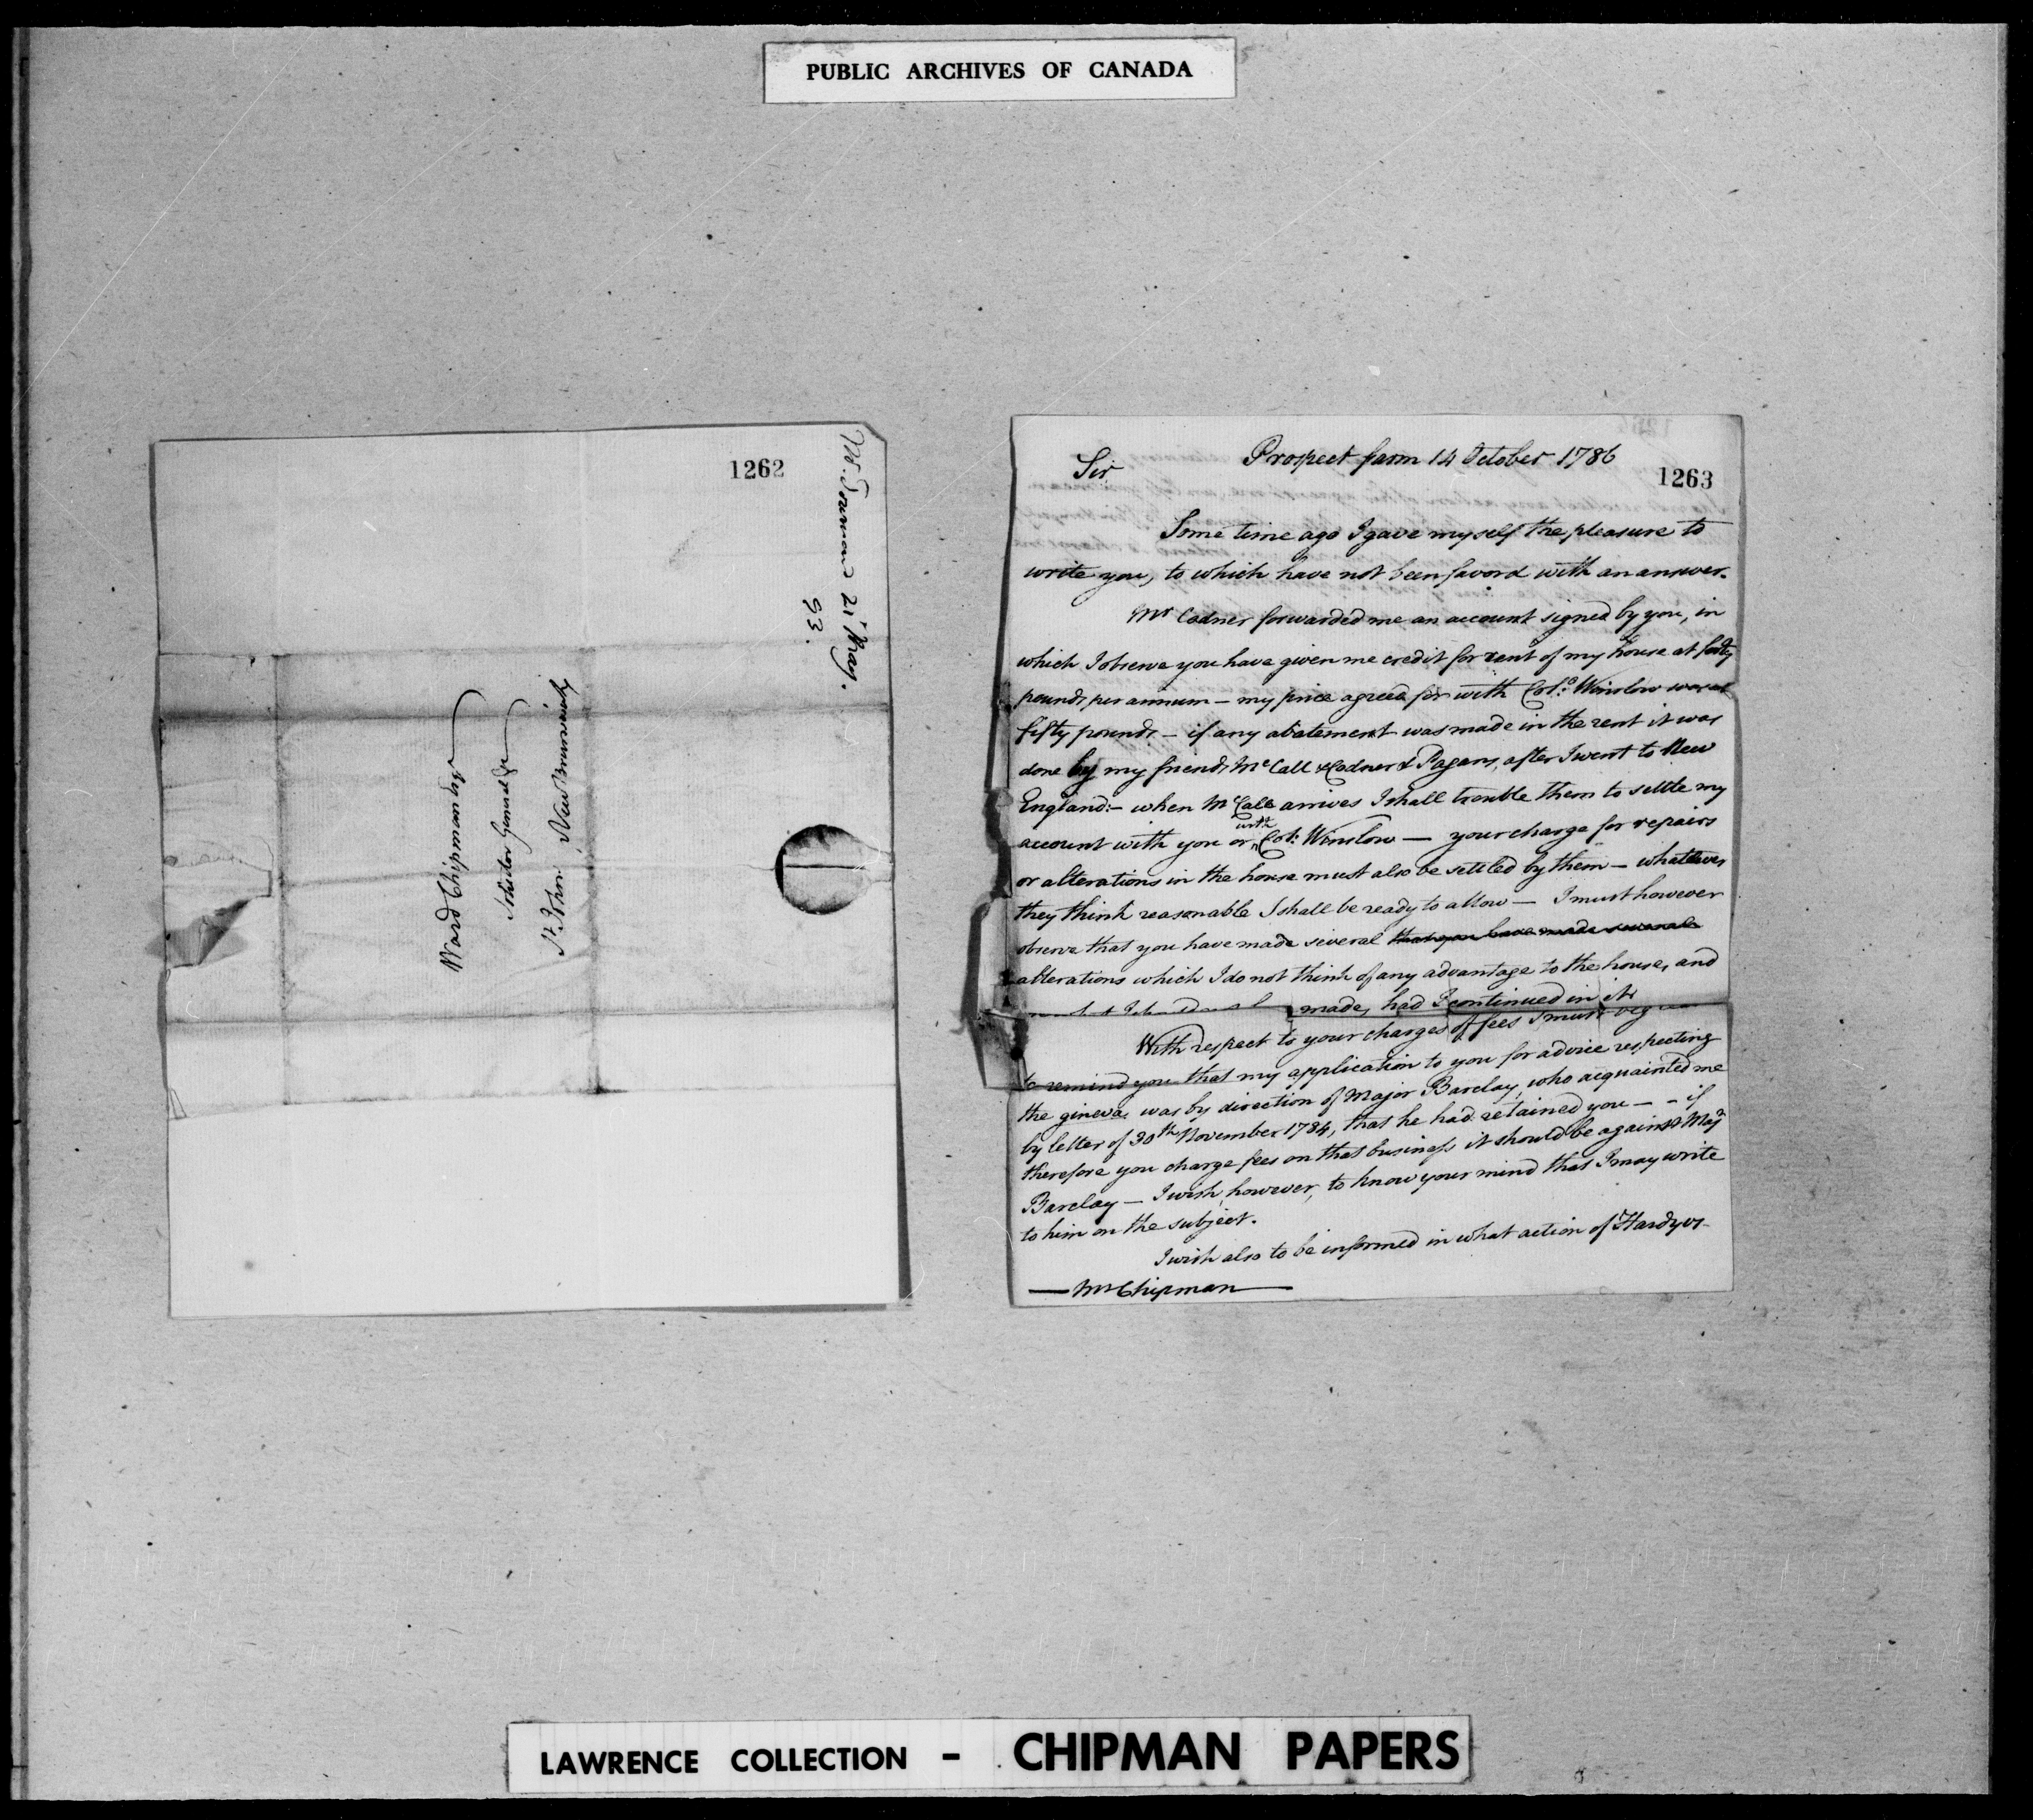 PUBLIC ARCHIVES OF CANADA
1262
Mr. 21 May.
93.
Ward Chipman Esqr
Solicitor General &c
St. John. New Brunswick
1263
Prospect farm 14 October 1786
Sir
Some time ago I gave myself the pleasure to
write you, to which have not been favord with an answer.
Mr Codner forwarded me an account signed by you, in
which I observe you have given me credit for rent of my house at forty
pounds per annum — my price agreed for with Colo. Winslow was at
fifty pounds — if any abatement was made in the rent it was
done by my friends McCall & Codner & Pagans, after I went to New
England:— when McCall arrives I shall trouble them to settle my
account with you or with Col: Winslow — your charge for repairs
or alterations in the house must also be settled by them — whatever
they think reasonable I shall be ready to allow — I must however
observe that you have made several that you have made several
alterations which I do not think of any advantage to the house, and
made, had I continued in it
With respect to your charges of fees I must beg
to remind you that my application to you for advice respecting
the gineva, was by direction of Major Barclay, who acquainted me
by letter of 30th November 1784, that he had retained you — – if
therefore you charge fees on that business it should be against Majr
Barclay — I wish, however, to know your mind that I may write
to him on the subject.
I wish also to be informed in what action of Hardy vs
— Mr Chipman —
LAWRENCE COLLECTION - CHIPMAN PAPERS